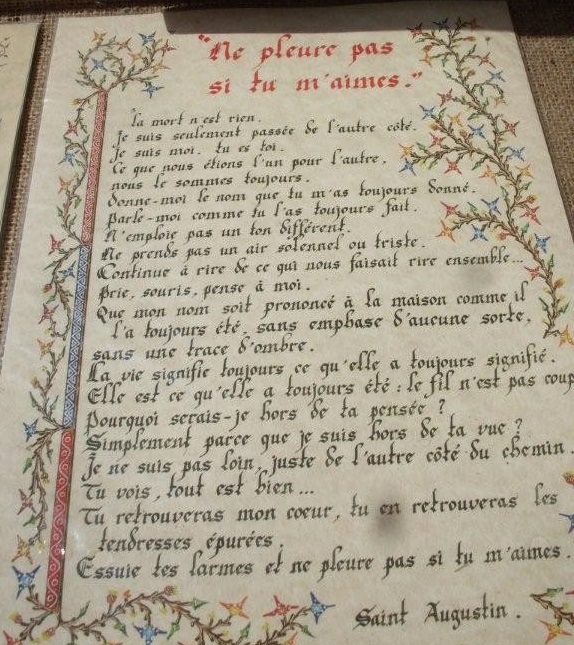 "Ne pleure pas
si tu m'aimes."
la mort n'est rien.
Je suis seulement passée de l'autre côté.
Je suis moi. tu es toi.
Ce que nous étions l'un pour l'autre,
nous le sommes toujours.
Donne-moi le nom que tu m'as toujours donné.
Parle-moi comme tu l'as toujours fait.
N'emploie pas un ton différent.
Ne prends pas un air solennel ou triste.
Continue à rire de ce qui nous faisait rire ensemble...
Prie, souris, pense à moi.
Que mon nom soit prononcé à la maison comme il
l'a toujours été, sans emphase d'aucune sorte,
sans une trace d'ombre.
La vie signifie toujours ce qu'elle a toujours signifié.
Elle est ce qu'elle a toujours été : le fil n'est pas coup
Pourquoi serais-je hors de ta pensée ?
Simplement parce que je suis hors de ta vue ?
Je ne suis pas loin, juste de l'autre côté du chemin.
Tu vois, tout est bien...
Tu retrouveras mon coeur, tu en retrouveras les
tendresses épurées.
Essuie tes larmes et ne pleure pas si tu m'aimes.
Saint Augustin.